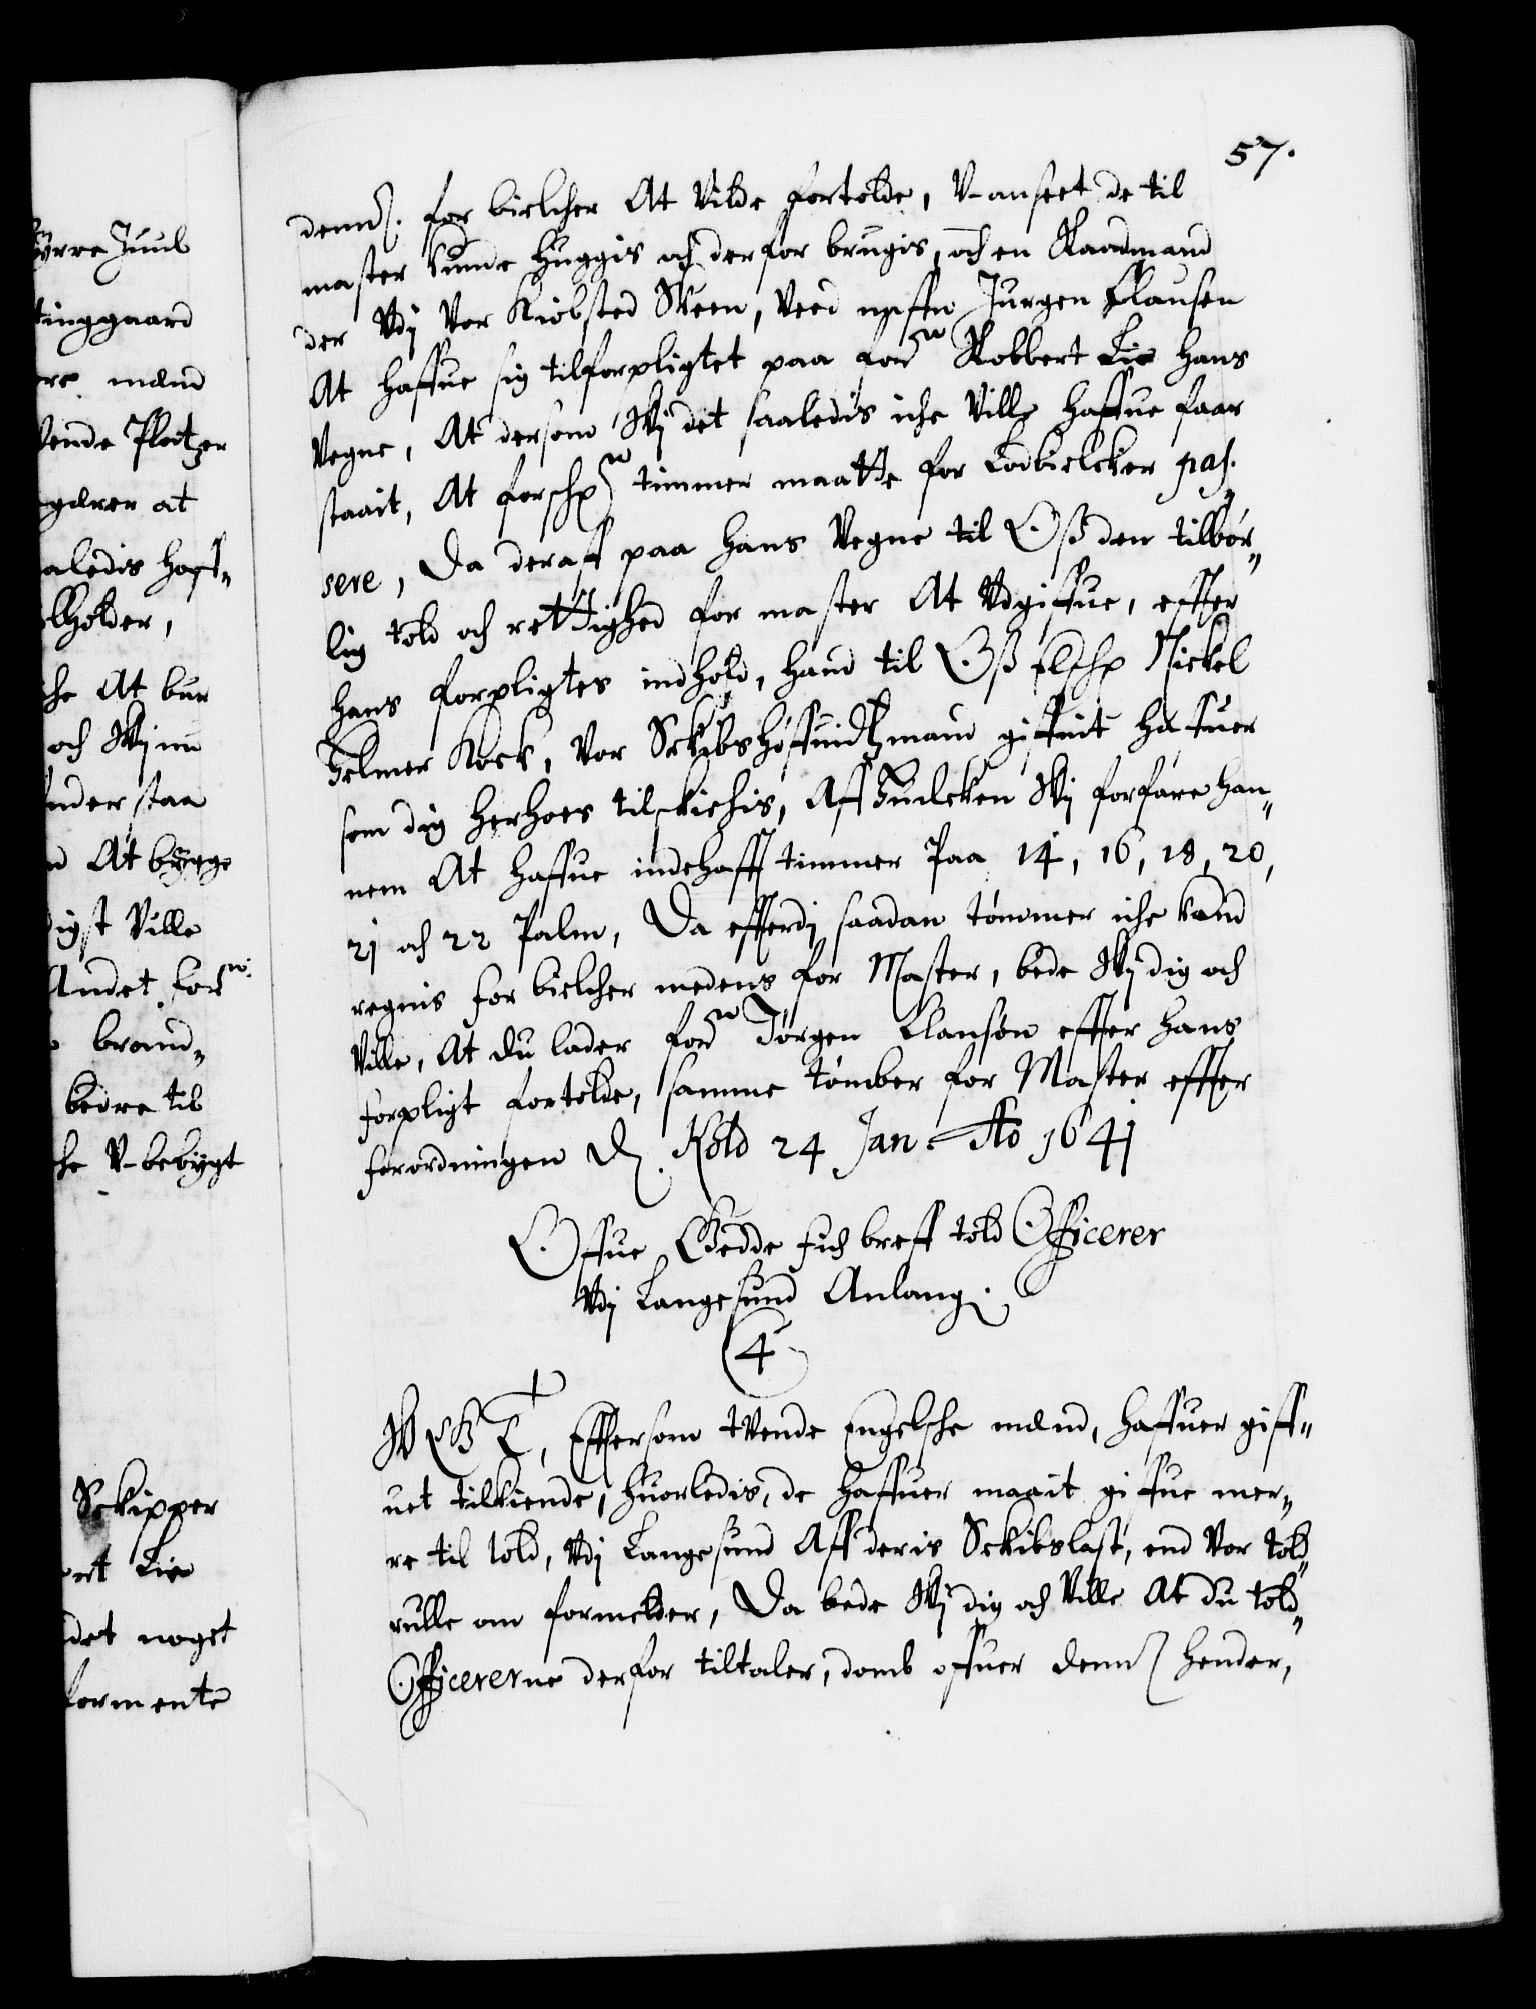 57.
dennem. for bielcher At Vilde fortolde, V-anseet de til
master kunde huggis och derfor brugis, och en Raadmand
der Vdj Vor Kiøbsted Skeen, Veed naffn Jurgen Clausen
At haffue sig tilforpligtet paa forne Robbert Lie hans
Vegne, At dersom Wj det saaledis iche Ville haffue faar
staait, At forschne timmer maatte for Lodbielcker pas¬
sere, Da deraff paa hans Vegne til Oß den tilbør¬
lig told och rettighed for master At Vdgiffue, effter
hans forpligtes indhold, hand til Oß elsche Nickel
Helmer Kock, Vor Skibshøffuidtzmand giffuit haffuer
som dig herhoes tilskichis, Aff huilcken Wj forfare han¬
nem At haffue indehafft timmer Paa 14, 16, 18, 20,
21 och 22 Palm, Da efftterdj saadan tømmer iche kand
regnis for bielcher medens for Master, bede Wj dig och
Ville, At du lader forne Jørgen Clausøn effter hans
forpligt fortolde, samme tømber for Master effter
forordningen D. Kold 24 Jan. Ao 1641
Offue Gedde fich breff told Officerer
Vdj Langesund Anlang.
4
W G T, Efftersom tvende Engelsche mænd, haffuer giff¬
uet tilkiende, huorledis, de haffuer maait giffue mer¬
re til told, Vdj Langesund Aff deris Skibslast, end Vor told¬
rulle om formelder, Da bede Wj dig och Ville At du told¬
Officererne derfor tiltaler, domb offuer dennem hender,
Juul
tinggaard
mænd
Platzer
at
aledis haff¬
holder,
che At bur
och Wj nu
under staa
At bygge
digst Ville
Andet forn:
brand¬
bedre til
che V-bebygt
Skipper
Lie
det noget
formente